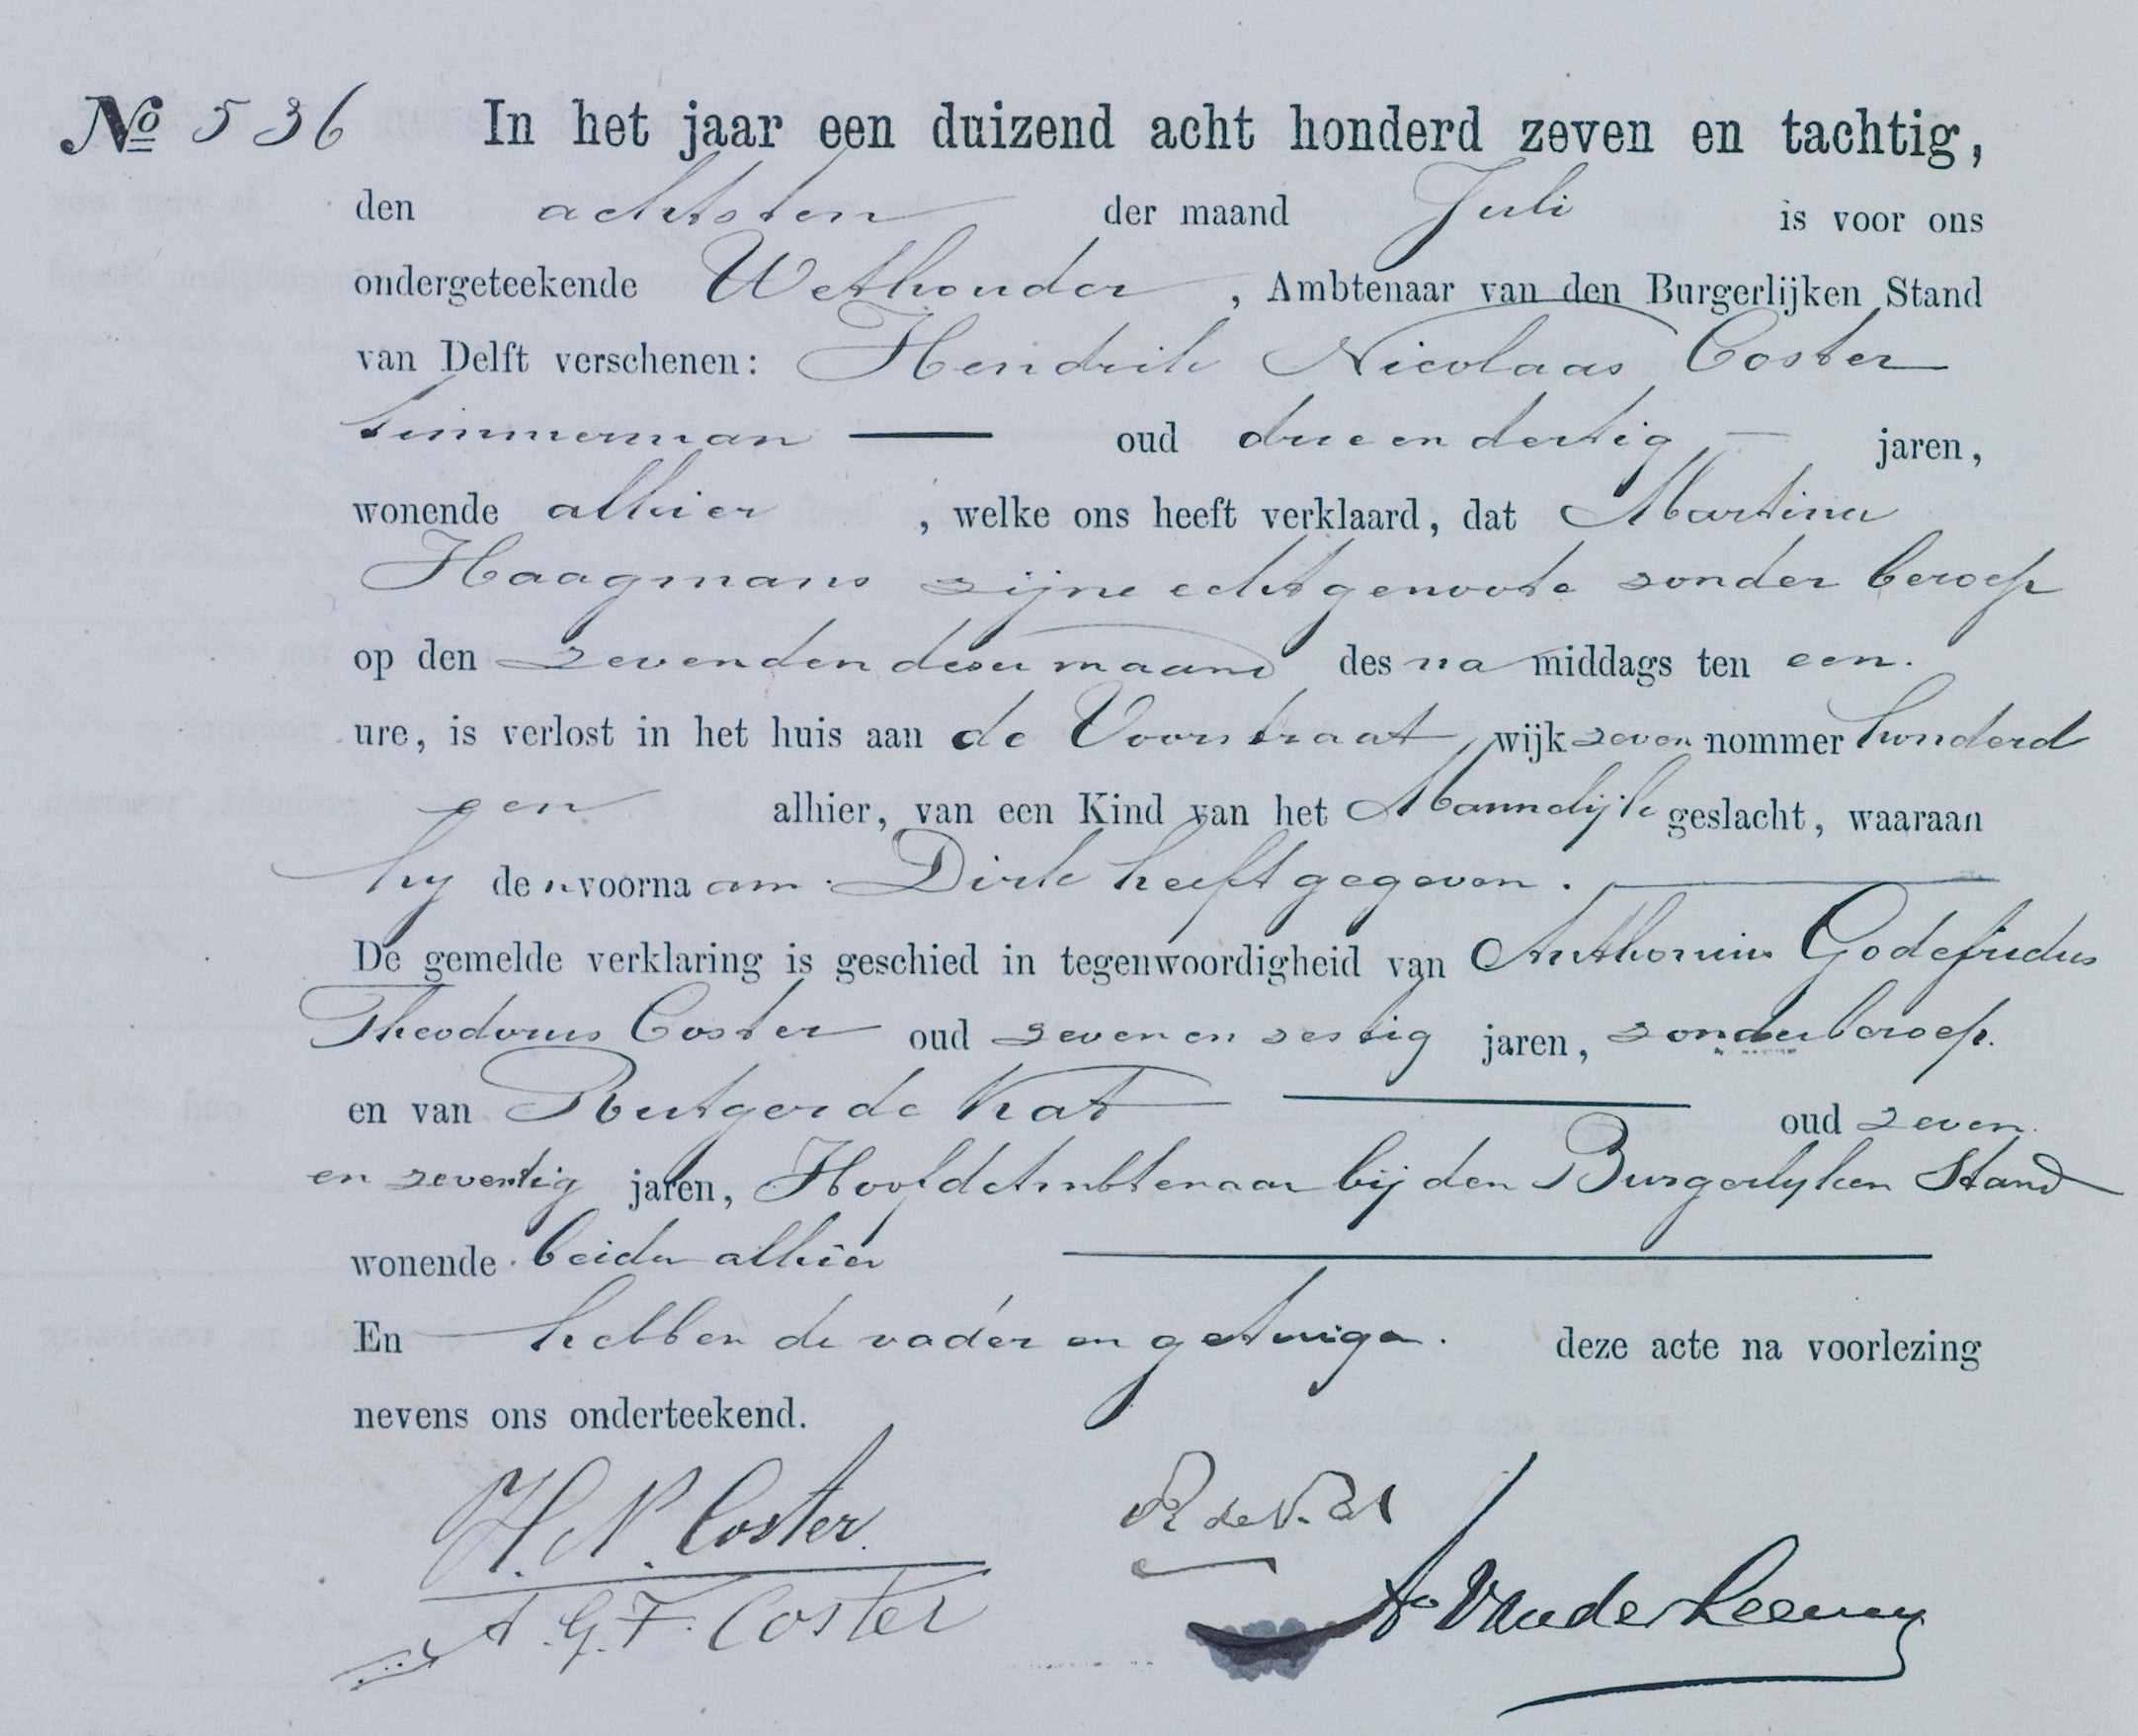 No 536 In het jaar een duizend acht honderd zeven en tachtig,
den achtsten der maand Juli is voor ons
ondergeteekende Wethouder, Ambtenaar van den Burgerlijken Stand
van Delft verschenen: Hendrik Nicolaas Coster
timmerman — oud drie en dertig — jaren,
wonende alhier, welke ons heeft verklaard, dat Martina
Haagmans zijne echtgenoote zonder beroep
op den zevenden dezer maand des na middags ten een
ure, is verlost in het huis aan de Voorstraat, wijk zeven nommer honderd
alhier, van een Kind van het Mannelijk geslacht, waaraan
hij den voornaam Dirk heeft gegeven. —
De gemelde verklaring is geschied in tegenwoordigheid van Anthonius Godefridus
Theodorus Coster oud zeven en zestig jaren, zonder beroep.
en van Rutger de Kat — oud zeven
en zeventig jaren, Hoofdambtenaar bij den Burgerlyken Stand
wonende beiden alhier —
En hebben de vader en getuigen. deze acte na voorlezing
nevens ons onderteekend.
H. N. Coster. R de Kat
A. G. T. Coster